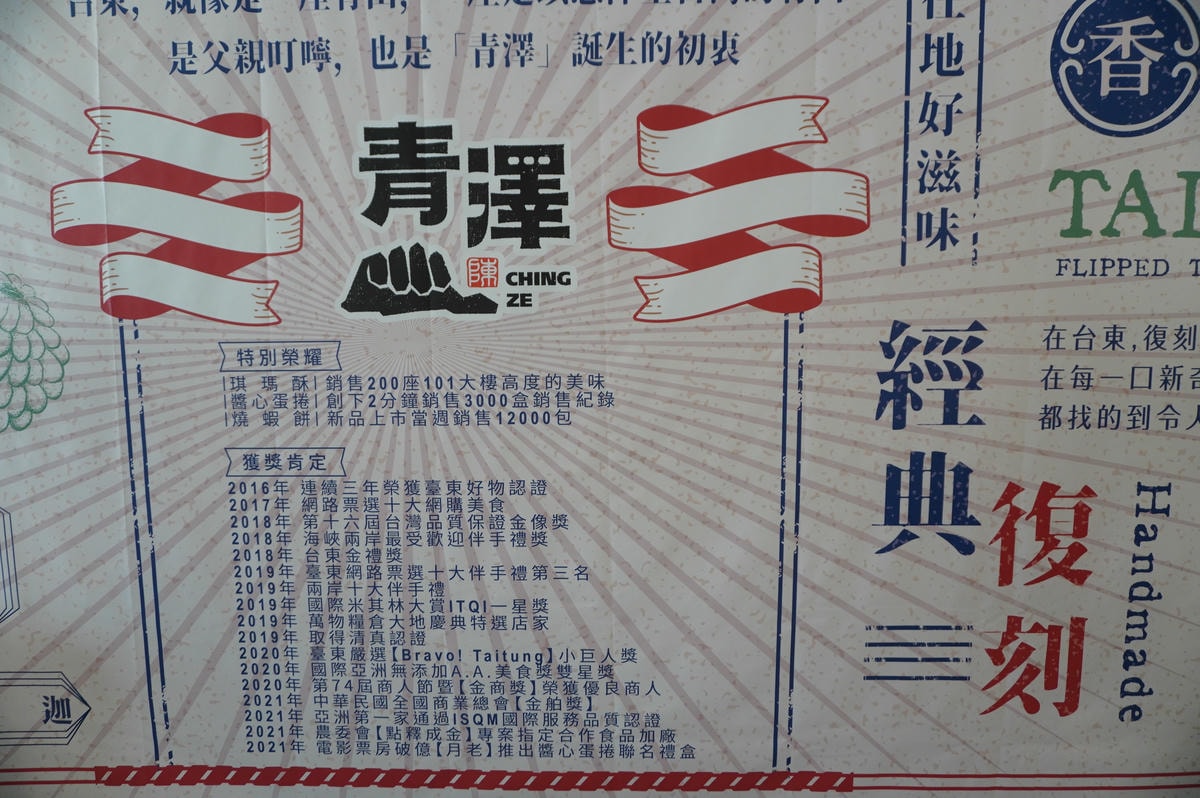 是父親叮嚀，也是「青澤」誕生的初衷
青澤
陳
CHING
ZE
特別榮耀
|琪瑪酥|銷售200座101大樓高度的美味
|醬心蛋捲|創下2分鐘銷售3000盒銷售紀錄
|燒蝦餅|新品上市當週銷售12000包
獲獎肯定
2016年 連續三年榮獲臺東好物認證
2017年 網路票選十大網購美食
2018年 第十六屆台灣品質保證金像獎
2018年 海峽兩岸最受歡迎伴手禮獎
2018年 台東金禮獎
2019年 臺東網路票選十大伴手禮第三名
2019年 兩岸十大伴手禮
2019年 國際米其林大賞ITQI一星獎
2019年 萬物糧倉大地慶典特選店家
2019年 取得清真認證
2020年 臺東嚴選【Bravo! Taitung】小巨人獎
2020年 國際亞洲無添加A.A.美食獎雙星獎
2020年 第74屆商人節暨【金商獎】榮獲優良商人
2021年 中華民國全國商業總會【金舶獎】
2021年 亞洲第一家通過ISQM國際服務品質認證
2021年 農委會【點釋成金】專案指定合作食品加廠
2021年 電影票房破億【月老】推出醬心蛋捲聯名禮盒
在地好滋味
香
TAI
FLIPPED T
經典
復刻
Handmade
在台東,復刻
在每一口新
都找的到令人
迦